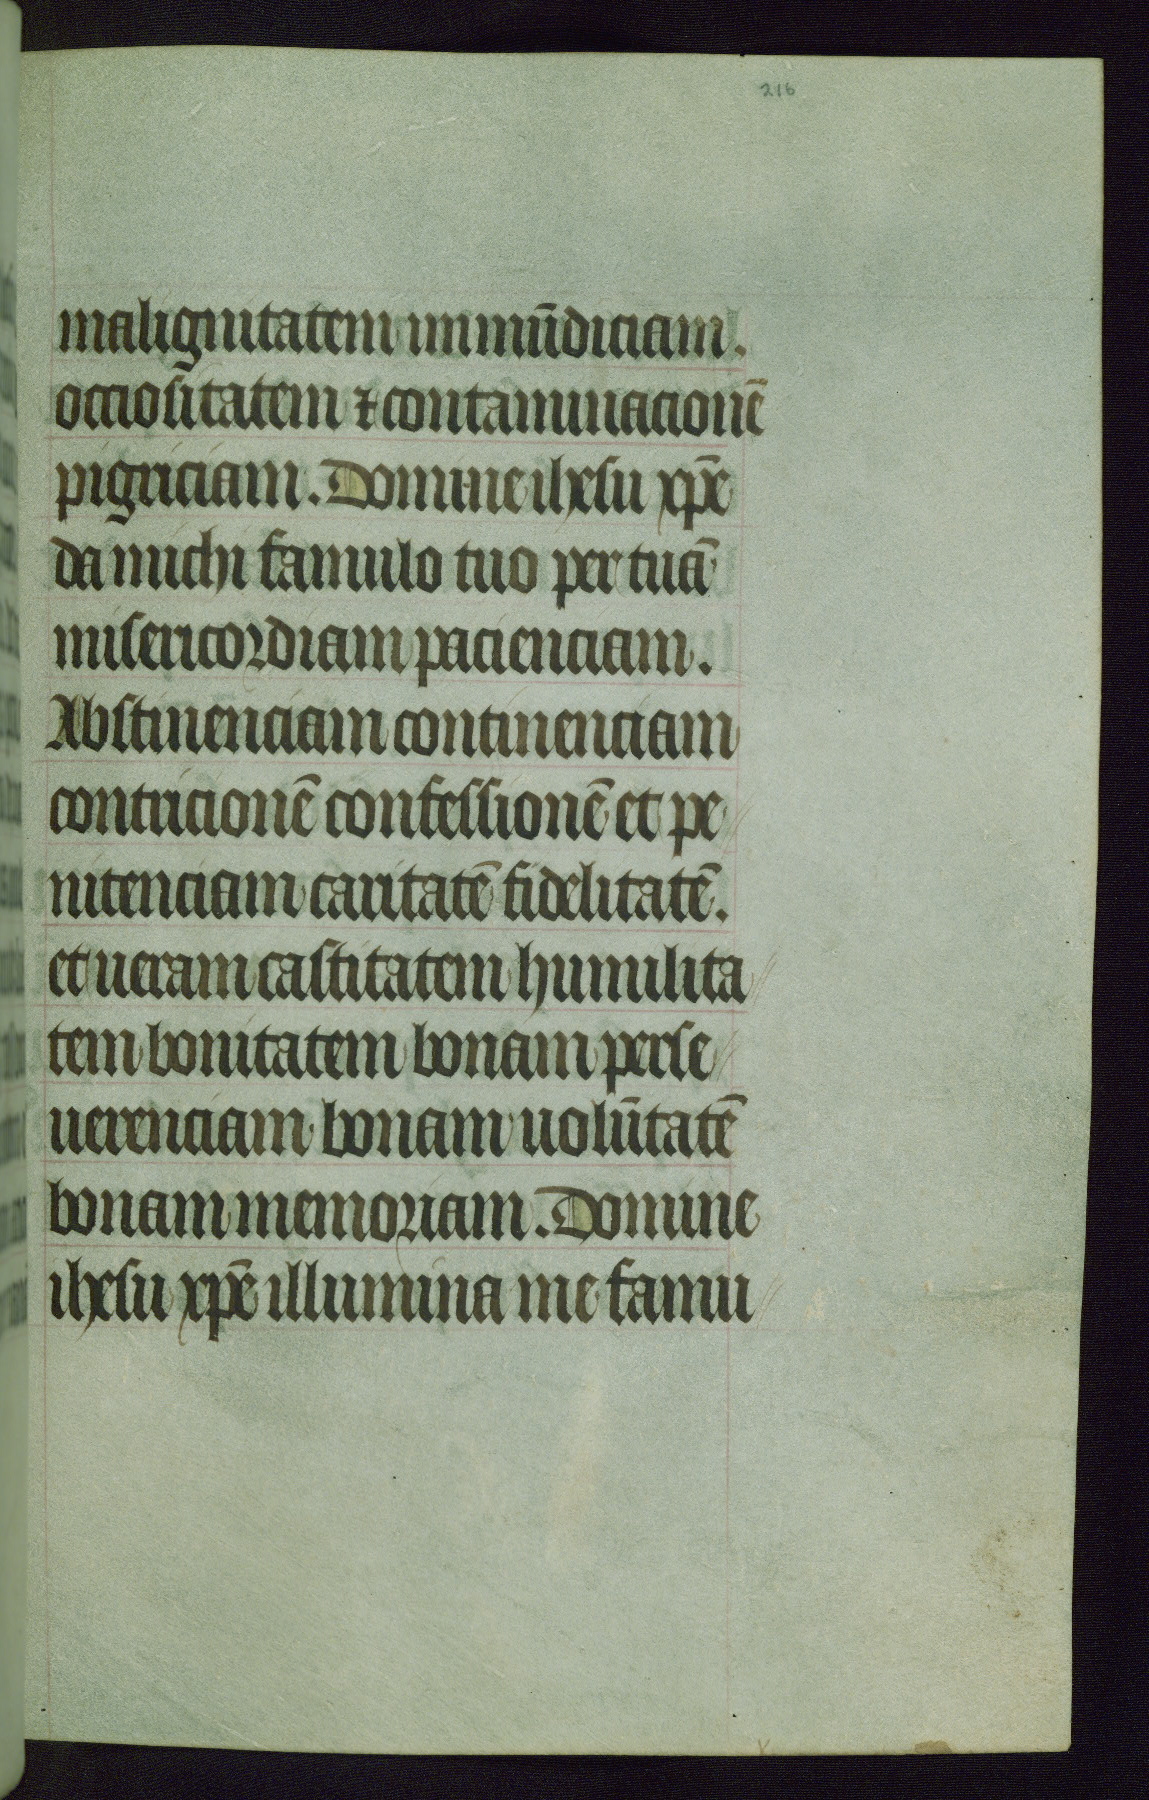 216
malignitatem immūdiciam.
occiositatem ⁊ contaminacionē
pigriciam. Domine ihesu xp̄e
da michi famulo tuo per tuā
misericordiam pacienciam.
Abstinenciam continenciam
contricionē confessionē et pe
nitenciam caritatē fidelitatē.
et ueram castitatem humilita
tem bonitatem bonam perse
uerenciam bonam uolūtatē
bonam memoriam. Domine
ihesu xp̄e illumina me famu